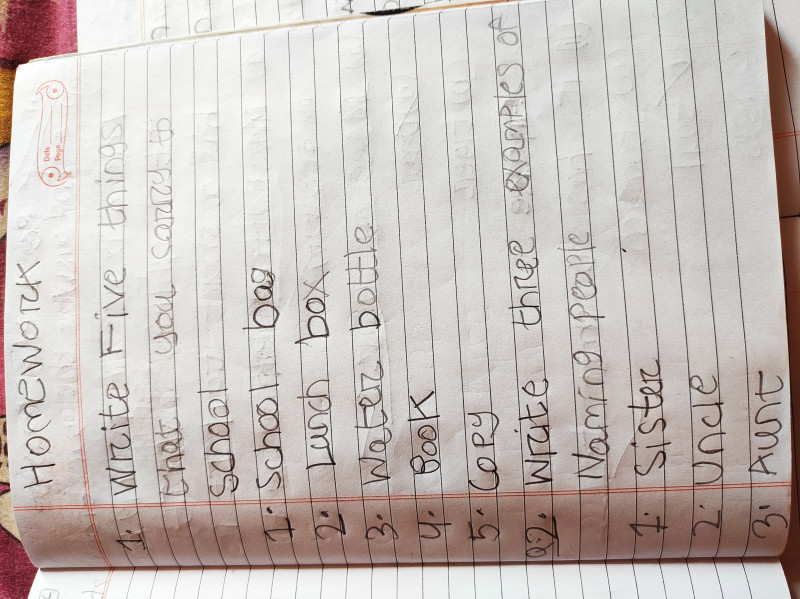 HOMEWORK
Date
Page
1. Write Five things
that you carry to
School
1. School bag
2. Lunch box
3. Water bottle
4. Book
5. Copy
Q.2. Write three examples of
Naming people
1. Sister
2. Uncle
3. Aunt